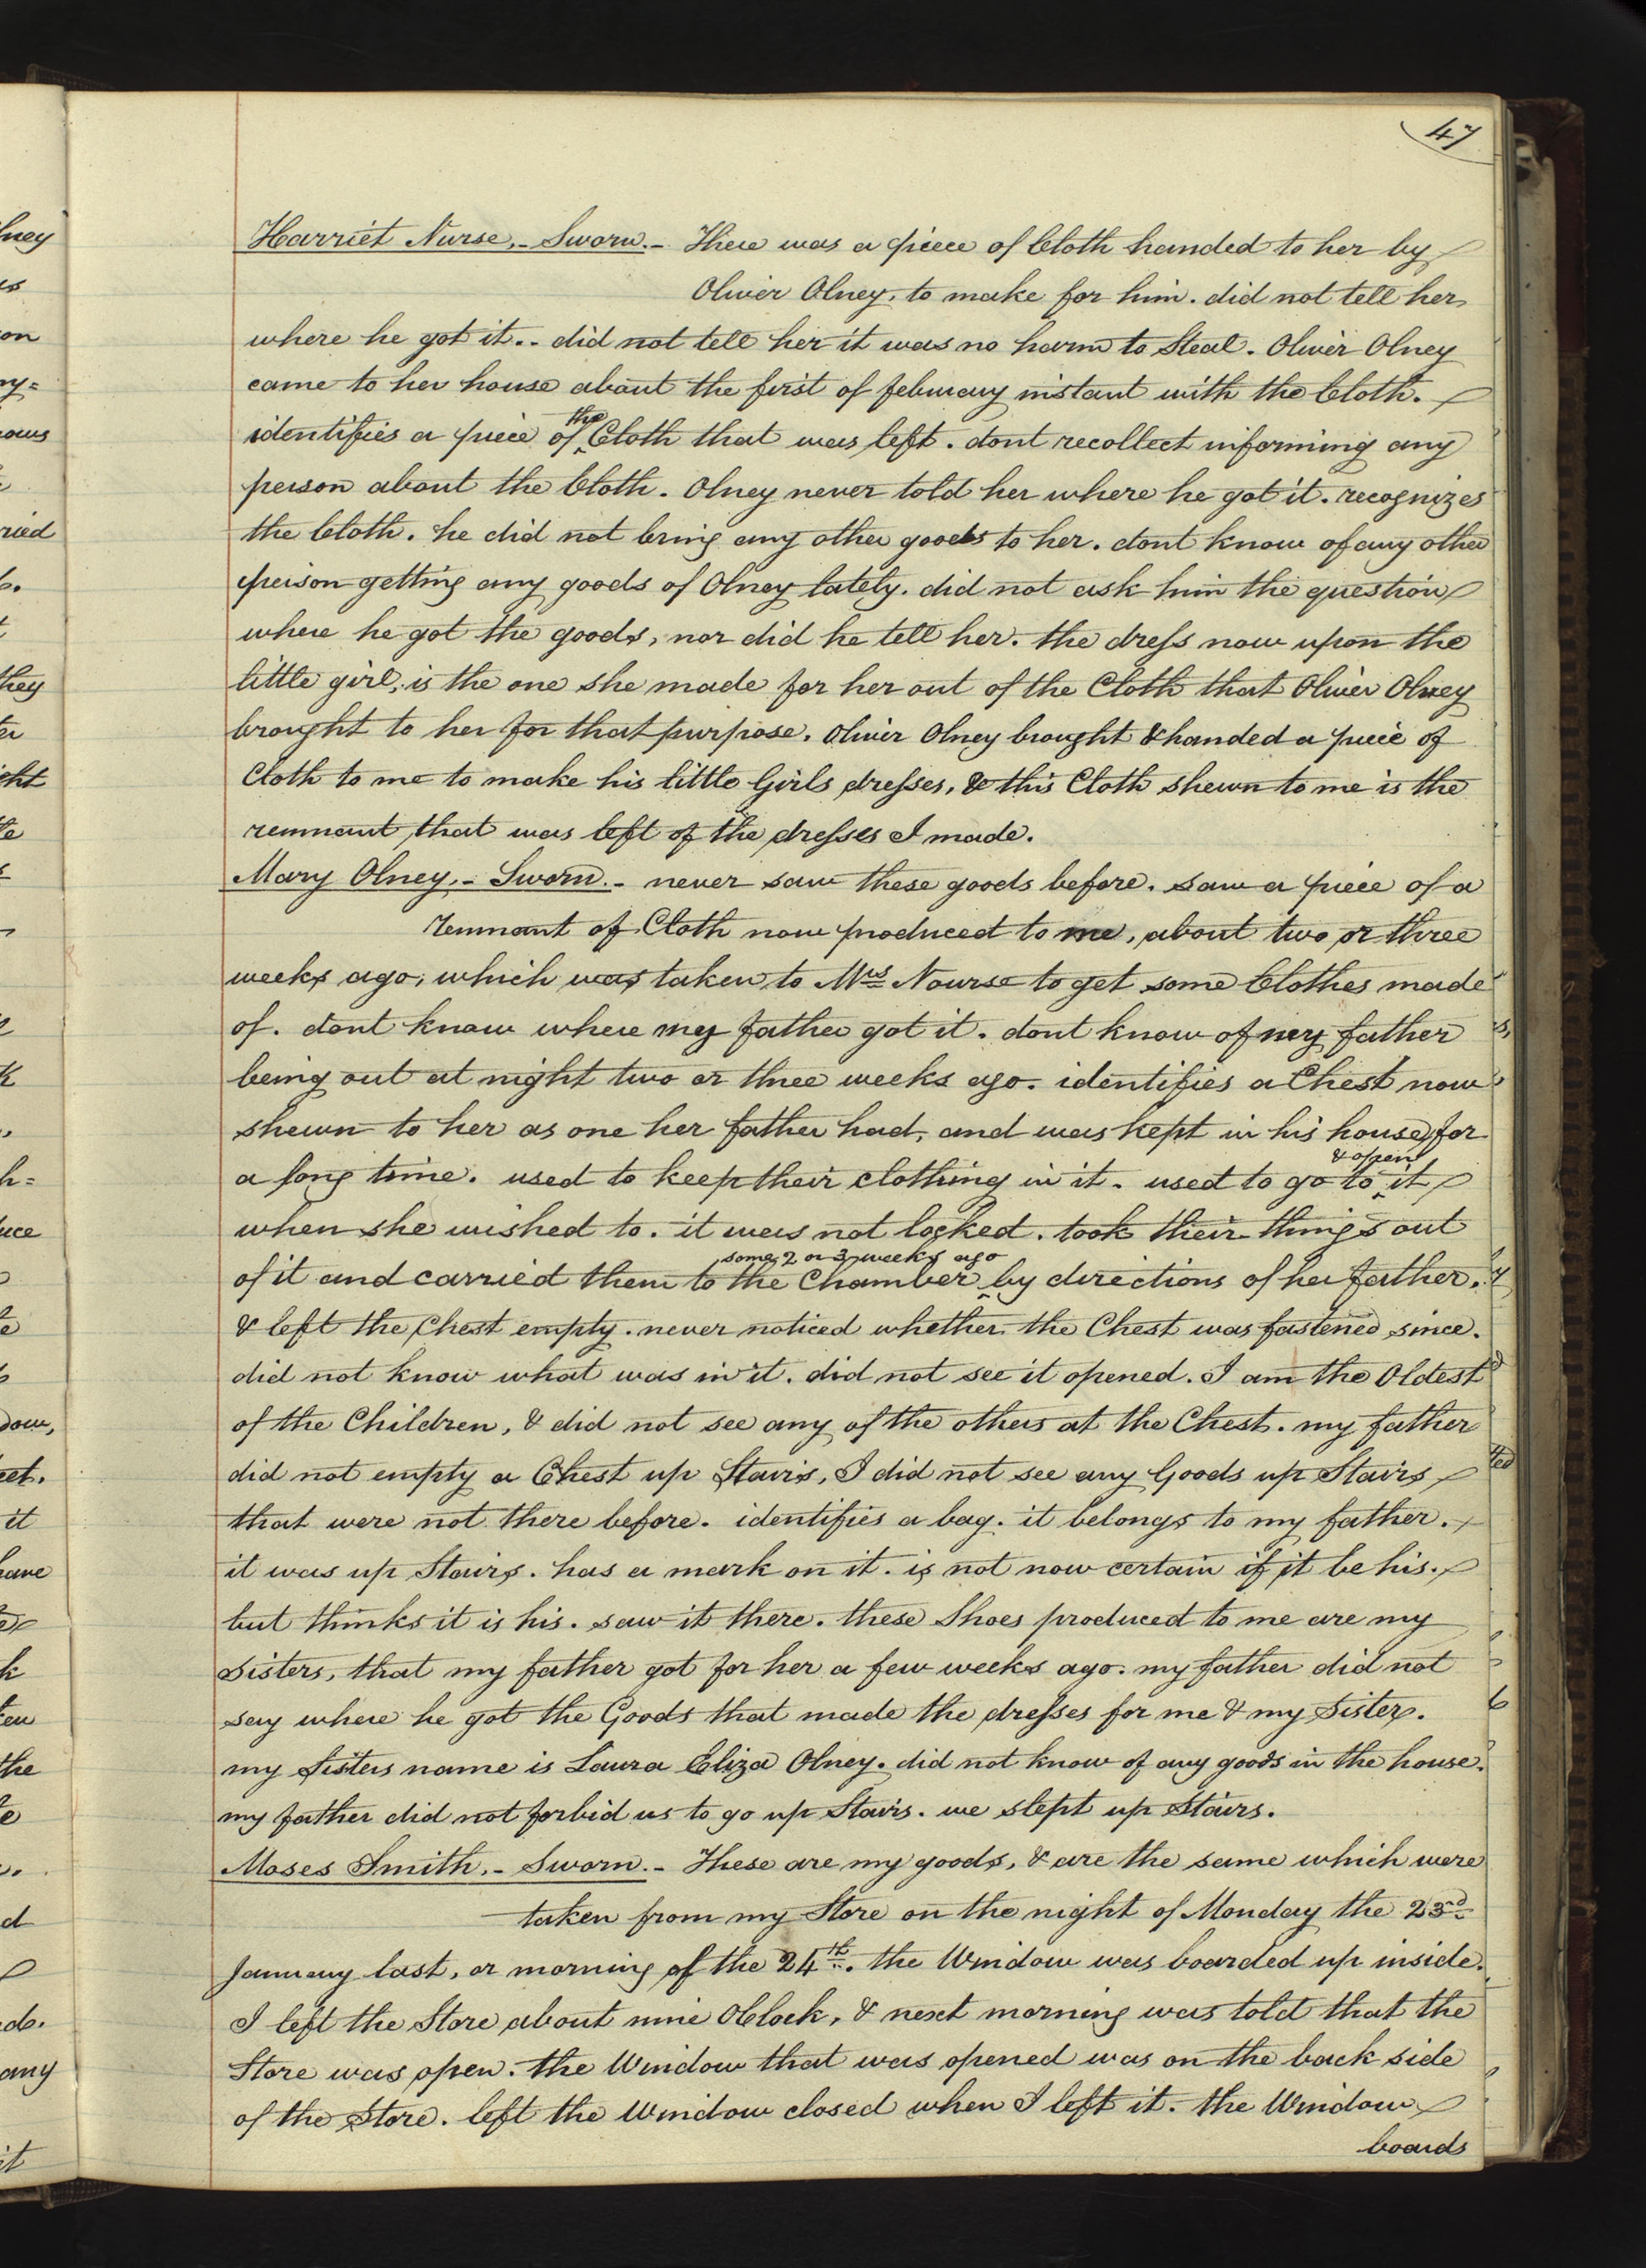 47
Harriet Nurse,- Sworn.- There was a piece of Cloth handed to her by
Oliver Olney, to make for him. did not tell her
where he got it.. did not tell her it was no harm to Steal. Oliver Olney
came to her house about the first of february instant with the Cloth.
identifies a piece of the Cloth that was left. dont recollect informing any
person about the Cloth. Olney never told her where he got it. recognizes
the Cloth. he did not bring any other goods to her. dont know of any other
person getting any goods of Olney lately. did not ask him the question
where he got the goods, nor did he tell her. the dress now upon the
little girl, is the one she made for her out of the Cloth that Oliver Olney
brought to her for that purpose. Oliver Olney brought & handed a piece of
Cloth to me to make his little Girls dresses, & this Cloth shewn to me is the
remnant that was left of the dresses I made.
Mary Olney,- Sworn.- never saw these goods before. saw a piece of a
remnant of Cloth now produced to me, about two or three
weeks ago, which was taken to Mrs Nourse to get some Clothes made
of. dont know where my father got it. dont know of my father
being out at night two or three weeks ago. identifies a Chest now
shewn to her as one her father had, and was kept in his house for
a long time. used to keep their clothing in it. used to go to & open it
when she wished to. it was not locked. took their things out
of it and carried them to the Chamber some 2 or 3 weeks ago by directions of her father.
& left the Chest empty. never noticed whether the Chest was fastened since.
did not know what was in it. did not see it opened. I am the Oldest
of the Children, & did not see any of the others at the Chest. my father
did not empty a Chest up Stairs, I did not see any Goods up Stairs
that were not there before. identifies a bag. it belongs to my father.
it was up Stairs. has a mark on it. is not now certain if it be his.
but thinks it is his. saw it there. these Shoes produced to me are my
Sisters, that my father got for her a few weeks ago. my father did not
say where he got the Goods that made the dresses for me & my Sister.
my Sisters name is Laura Eliza Olney. did not know of any goods in the house.
my father did not forbid us to go up Stairs. we slept up Stairs.
Moses Smith,- Sworn.- These are my goods, & are the same which were
taken from my Store on the night of Monday the 23rd
January last, or morning of the 24th. the Window was boarded up inside.
I left the Store about nine OClock, & next morning was told that the
Store was open. the Window that was opened was on the back side
of the Store. left the Window closed when I left it. the Window
boards